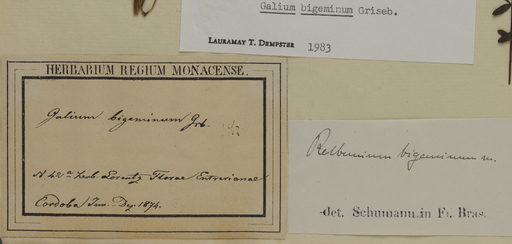 Galium bigeminum Griseb.
Lauramay T. Dempster 1983
HERBARIUM REGIUM MONACENSE.
Galium bigeminum Grb.
Relbunium bigeminum m.
N 42a Herb. Lorentz Florae Entrerianae
Cordoba Jun. - Dez. 1874.
-det. Schumann.in Fl. Bras.